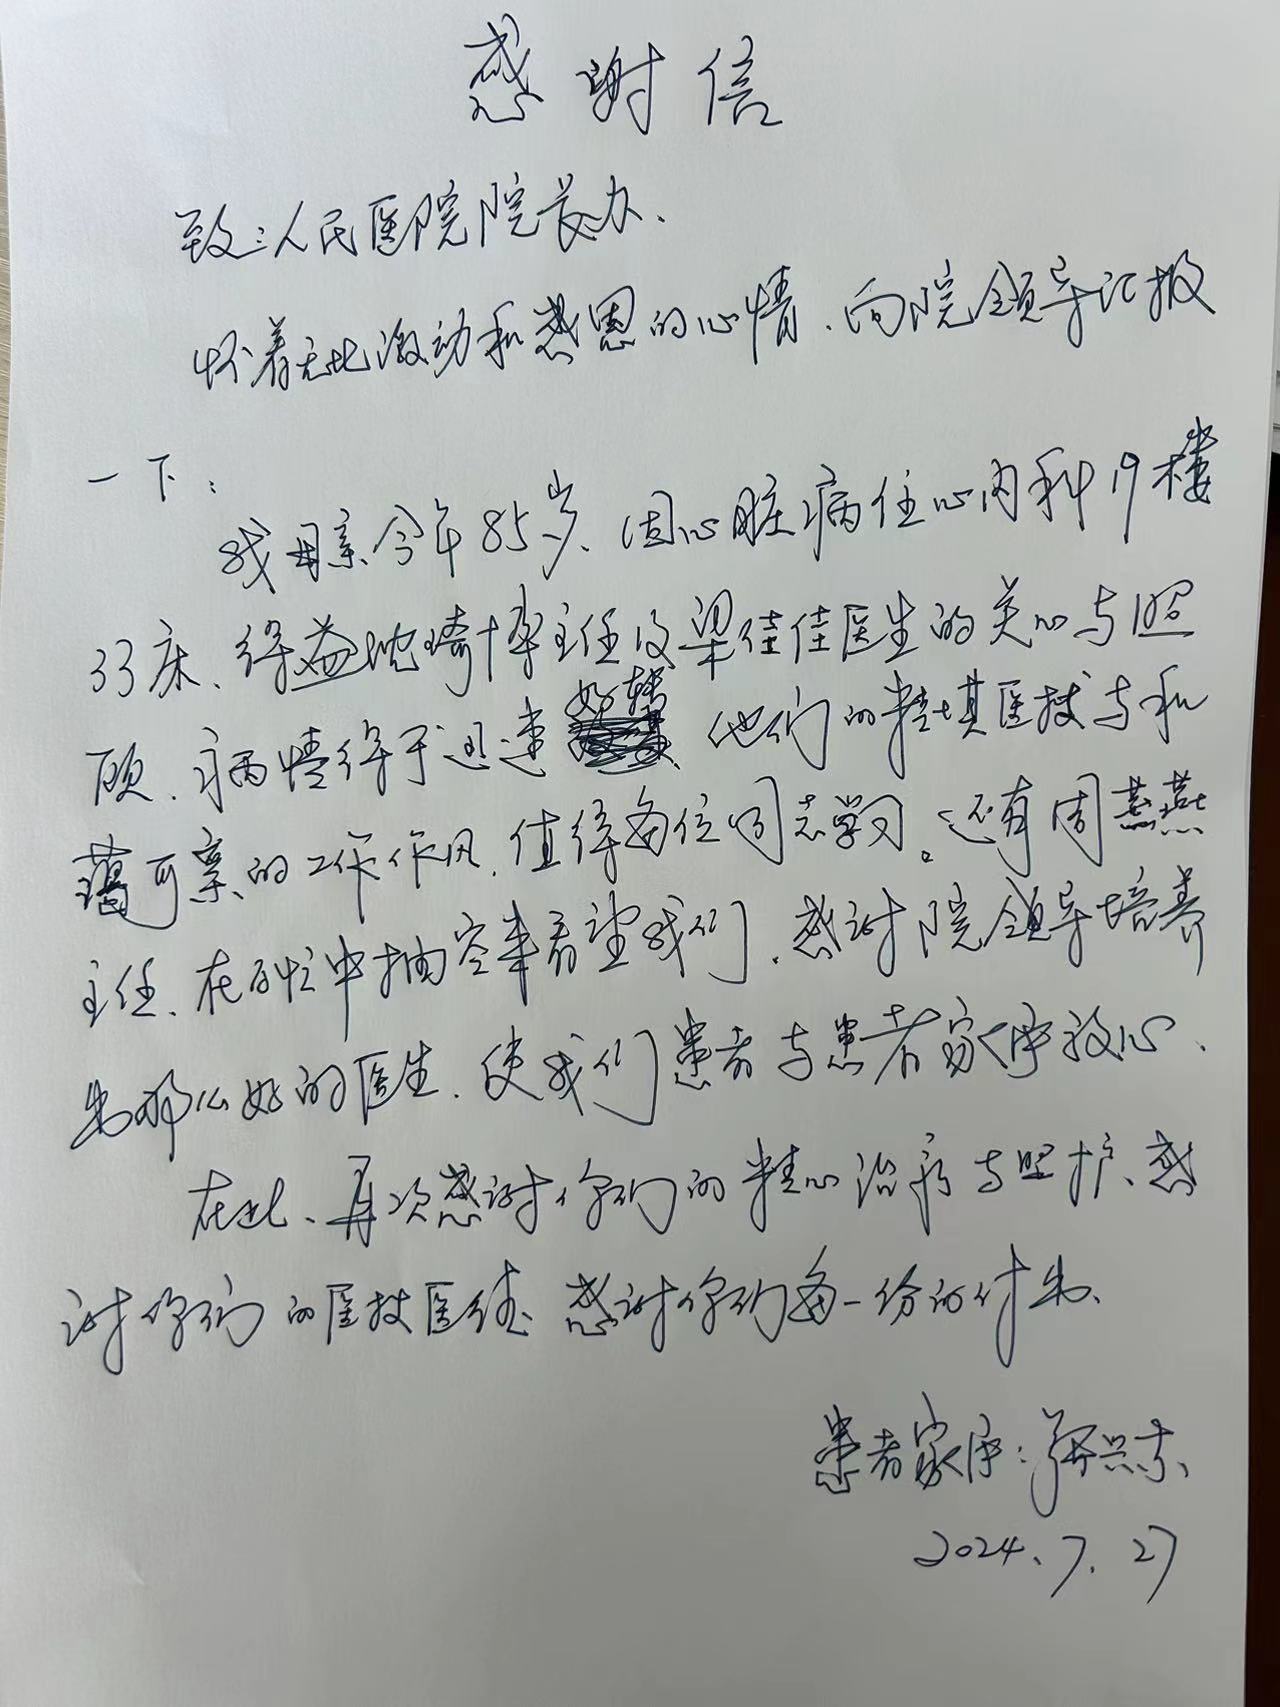 感谢信
致:人民医院院长办、
怀着无比激动和感恩的心情、向院领导汇报
一下:
我母亲今年85岁、因心脏病住心内科19楼
33床、得益沈琦博主任及梁佳佳医生的关心与照
顾、病情得于迅速好转、他们的精堪医技与和
蔼可亲的工作作风、值得每位同志学习。还有周燕燕
主任、在百忙中抽空来看望我们、感谢院领导培养
出那么好的医生、使我们患者与患者家属放心、
在此、再次感谢你们的精心治疗与照护、感
谢你们的医技医德 感谢你们每一份的付出、
患者家属:兴东、
2024、7、27